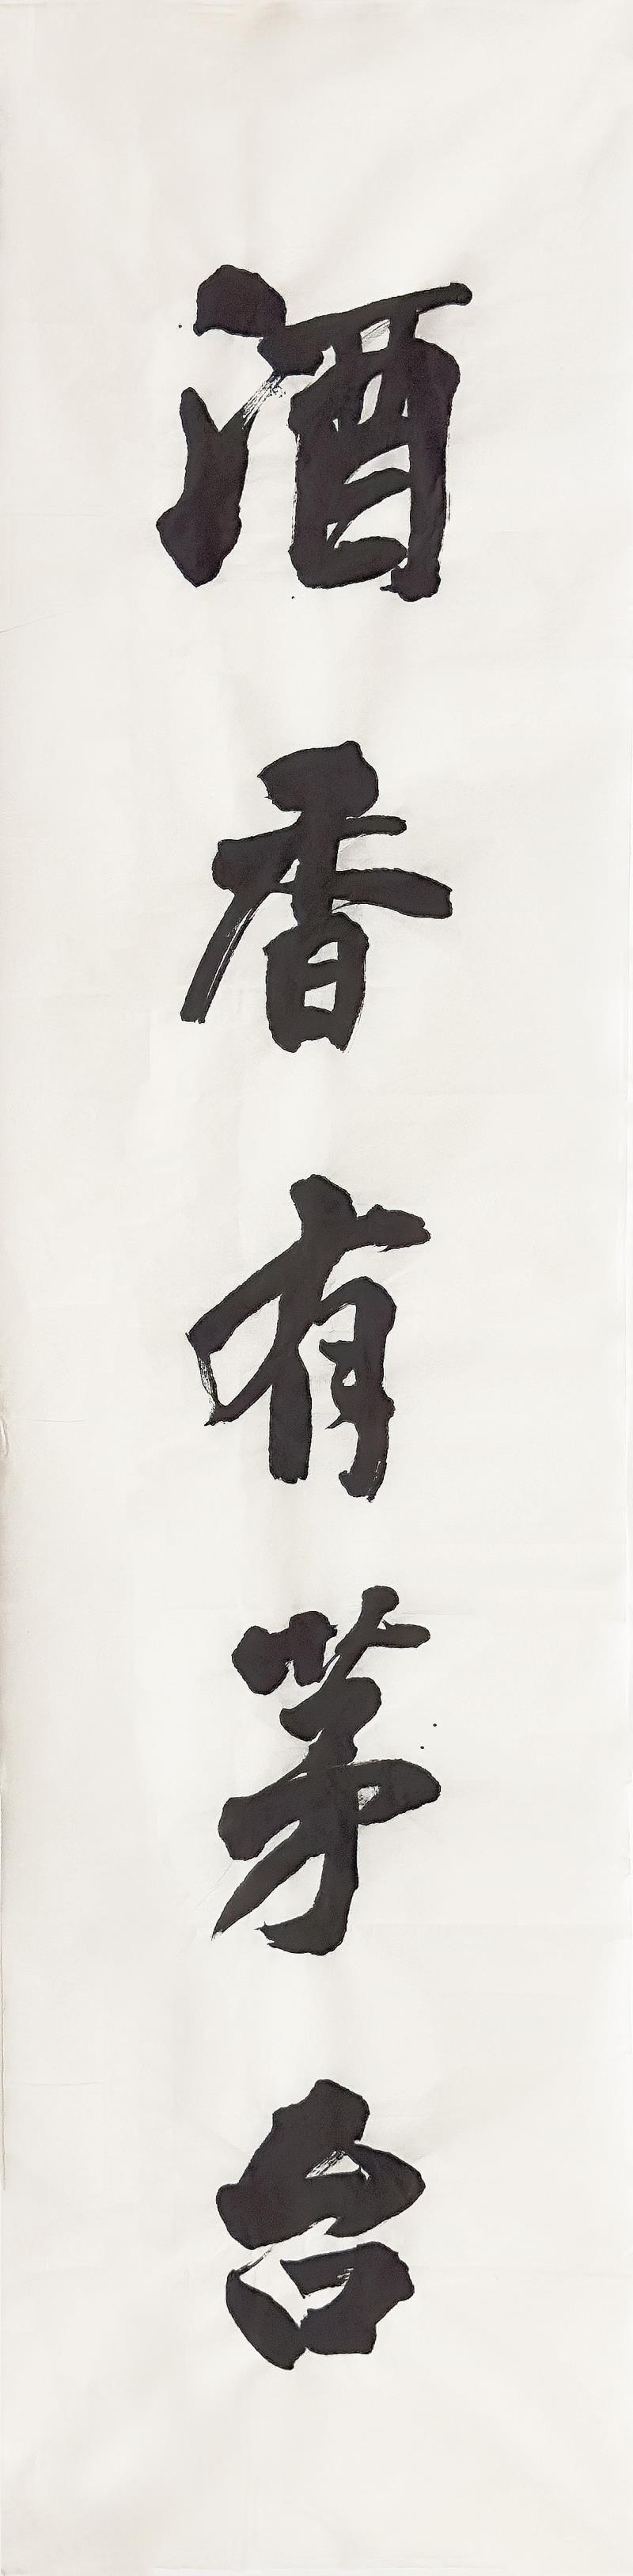 酒香有茅台